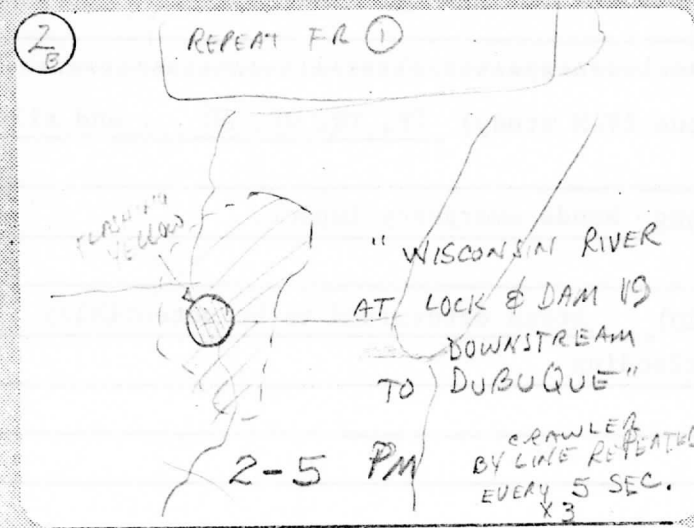 2
B
REPEAT FR 1
YELLOW
"WISCONSIN RIVER
AT LOCK & DAM 19
DOWNSTREAM
TO DUBUQUE"
2-5 PM
CRAWLER
BY LINE REPEATED
EVERY 5 SEC.
X3